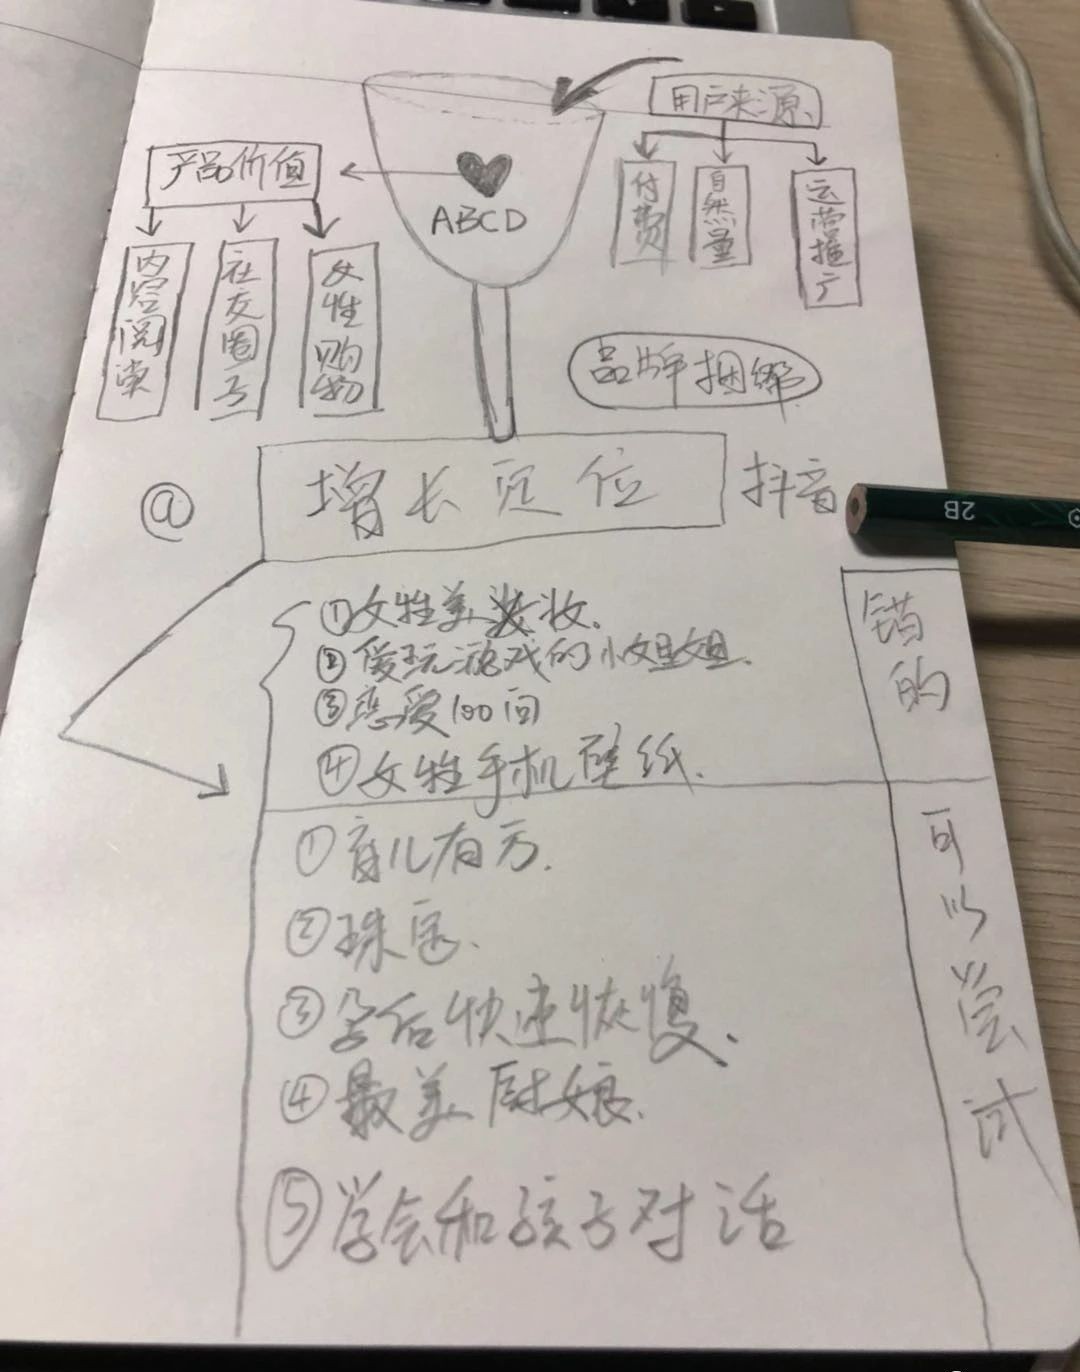 用户来源
付费
自然量
运营推广
产品价值
内容阅读
社交圈子
女性购物
ABCD
品牌捆绑
@
增长定位
抖音
2B
①女性美妆.
②爱玩游戏的小姐姐.
③恋爱100问
④女性手机壁纸.
错的
①育儿有方.
②珠宝.
③孕后快速恢复.
④最美厨娘.
⑤学会和孩子对话
可以尝试